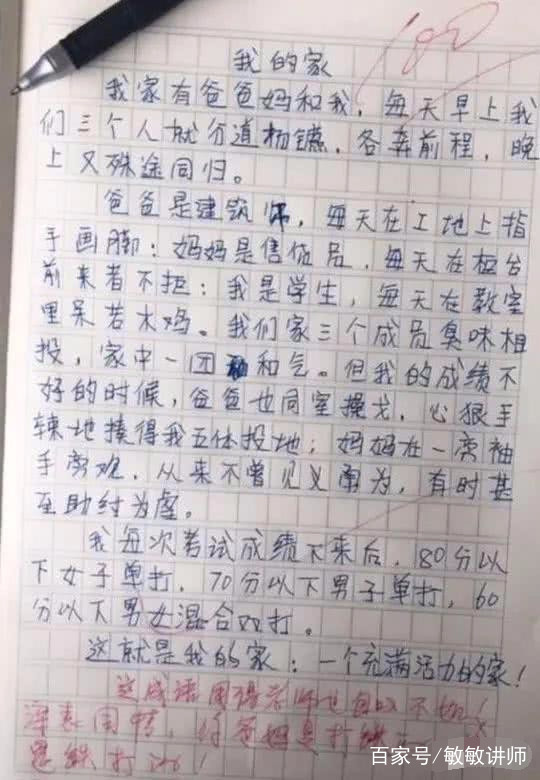 100
我的家
我家有爸爸妈和我，每天早上我
们三个人就分道杨镳，各奔前程，晚
上又殊途同归。
爸爸是建筑师，每天在工地上指
手画脚；妈妈是售货员，每天在柜台
前来者不拒；我是学生，每天在教室
里呆若木鸡。我们家三个成员臭味相
投，家中一团和气。但我的成绩不
好的时候，爸爸也同室操戈，心狠手
辣地揍得我五体投地；妈妈在一旁袖
手旁观，从来不曾见义勇为，有时甚
至助纣为虐。
我每次考试成绩下来后，80分以
下女子单打，70分以下男子单打，60
分以下男女混合双打。
这就是我的家：一个充满活力的家！
这成语用得老师也自以不如！
你爸妈是打
打
百家号/敏敏讲师